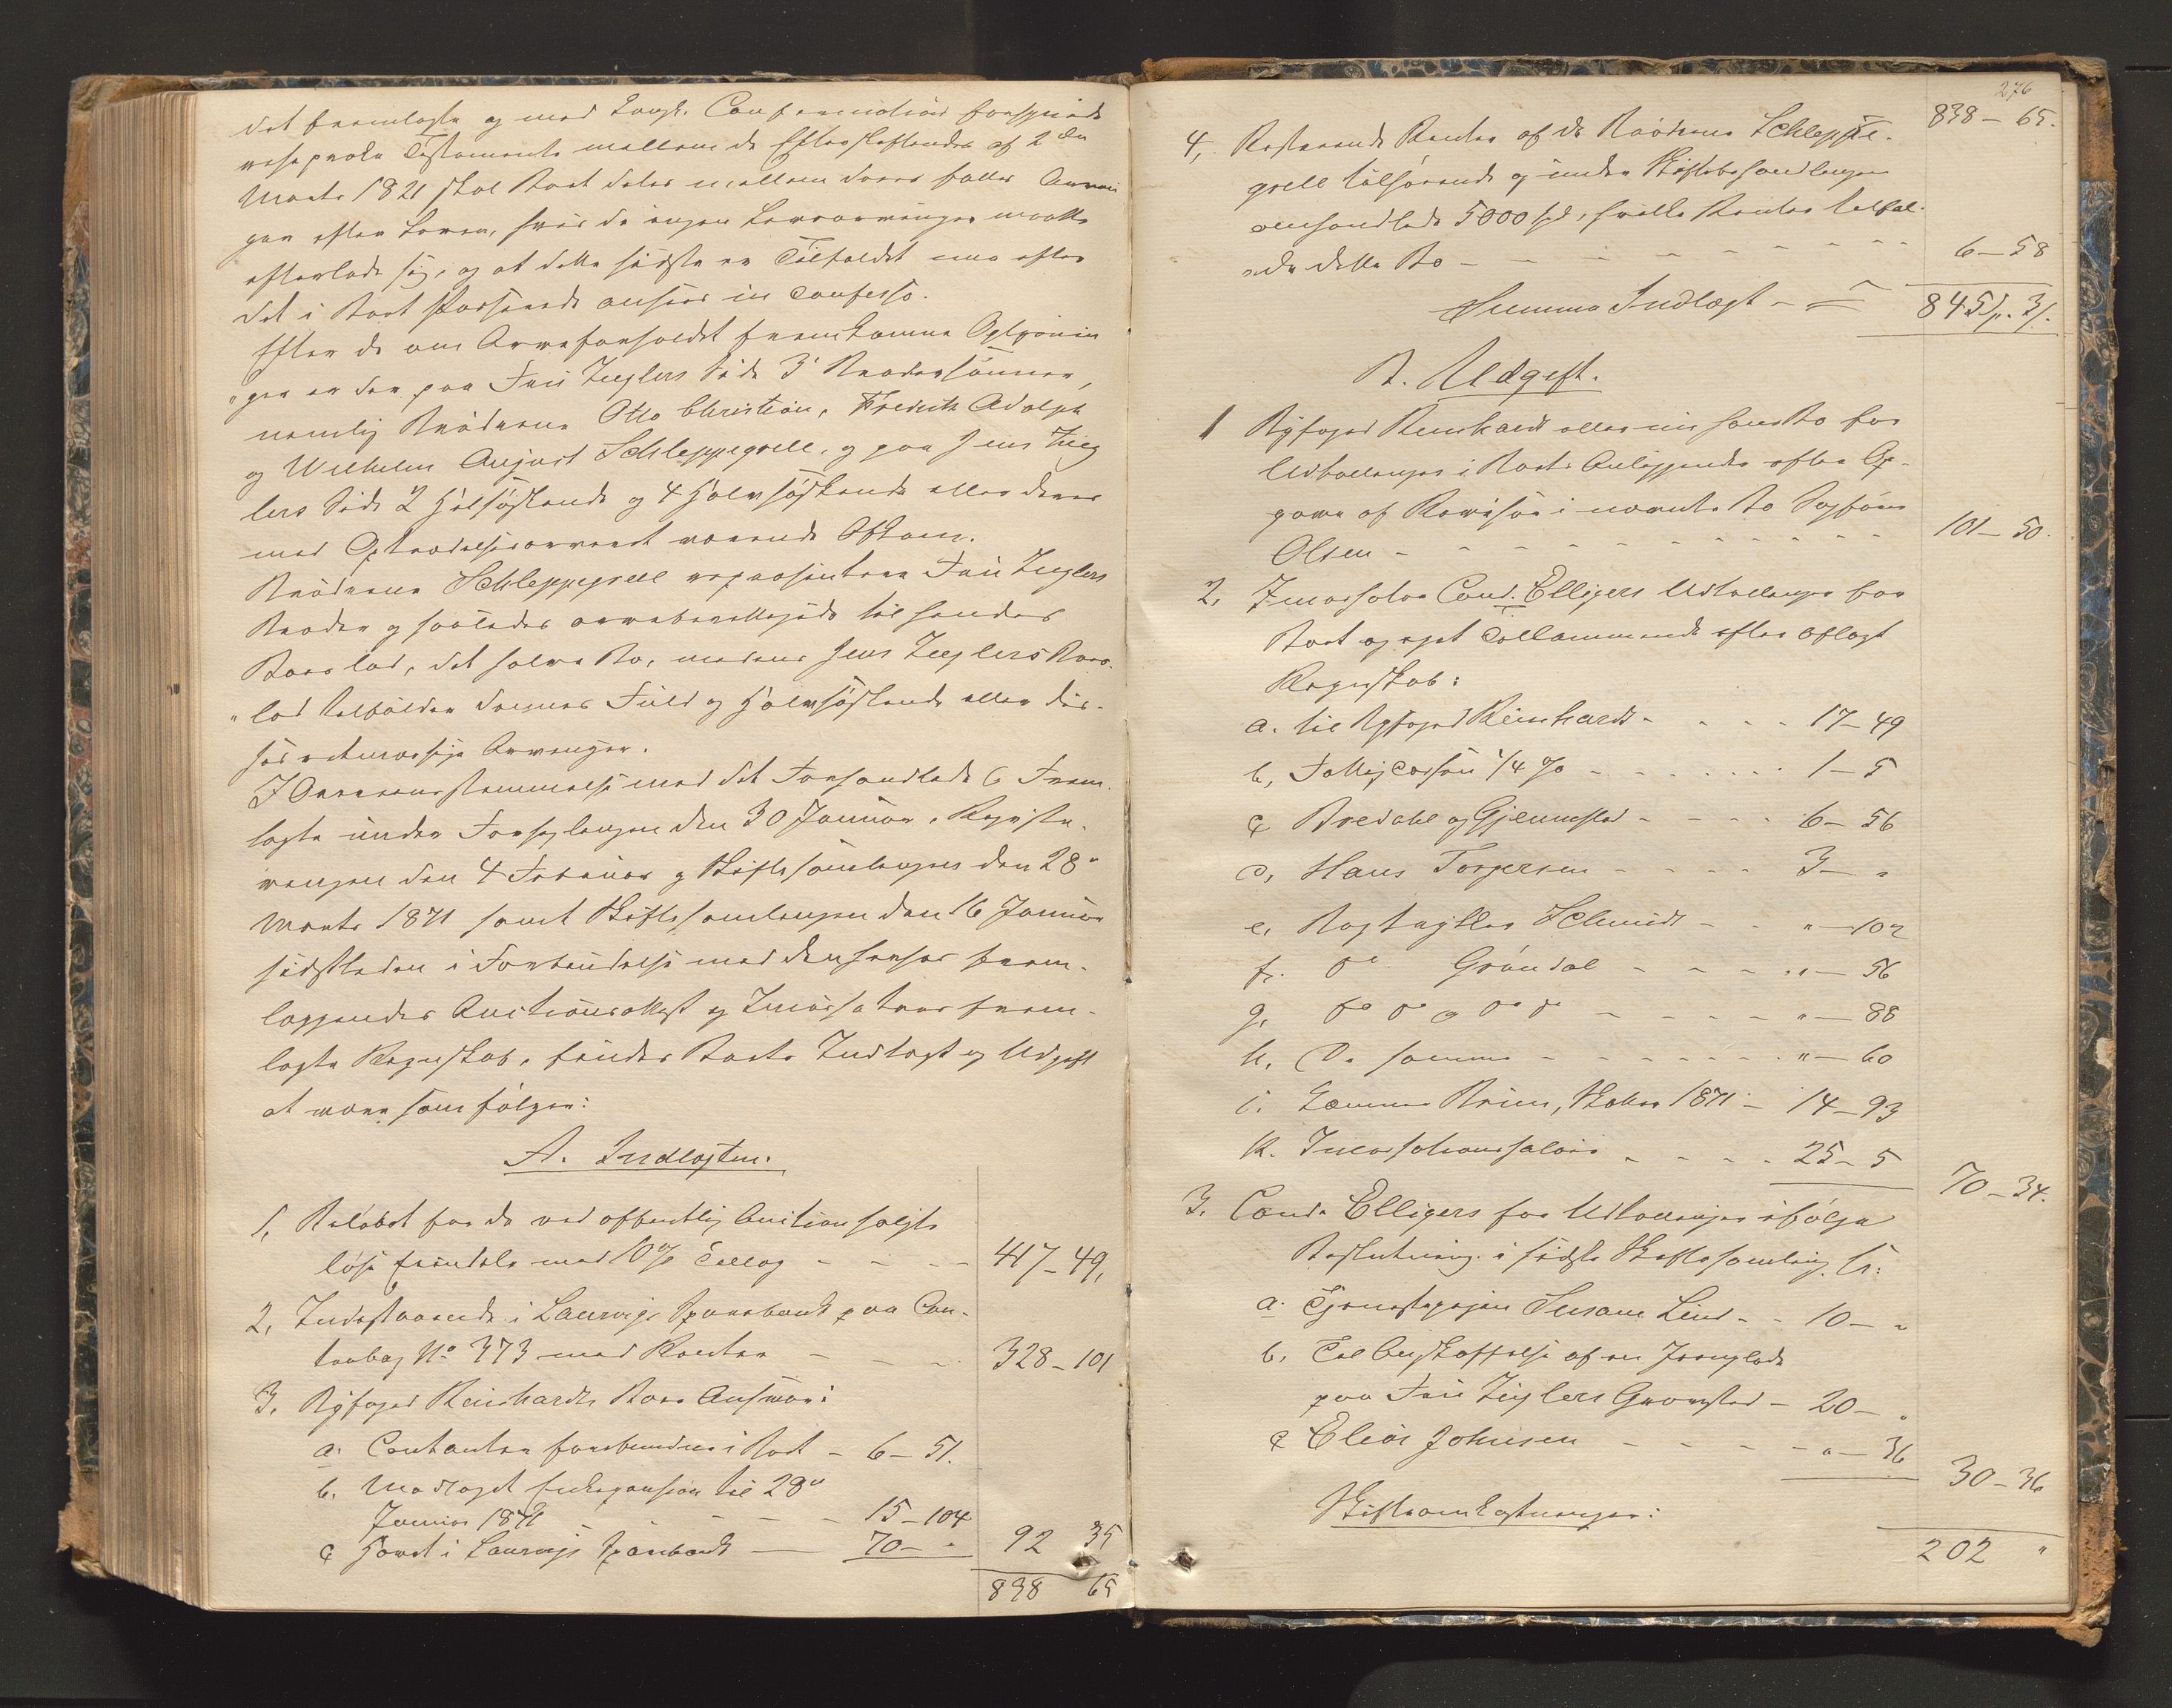 det fremlagte og med kongl. Confirmation forsynede
reciproke Testamente mellem de Efterladende af 2den
Marts 1821 skal Boet deles mellem deres fælles Arvin
ger efter Loven, hvis de ingen Livsarvinger maatte
efterlade sig, og at dette sidste er Tilfældet maa efter
det i Boet Passerede ansees in confesso.
Efter de om Arveforholdet fremkomne Oplysnin
"ger er der paa Fru Zieglers Side 3 Brodersønner,
nemlig Brødrene Otto Christian, Fredrik Adolph
og Wilhelm August Schleppegrell, og paa Jens Zieg
lers Side 2 Helsøskende og 4 Halvsøskende eller deres
med Optrædelsesarveret værende Afkom.
Brødrene Schleppegrell repræsenterer Fru Zieglers
Broder og saaledes arveberettigede til hendes
Boeslod, det halve Bo, medens Jens Zieglers Boes-
"lod tilfalder dennes Fuld og Halvsøskende eller dis-
ses retmæssige Arvinger.
I Overensstemmelse med det Forhandlede & Frem-
lagte under Forseglingen den 30 Januar, Registe-
ringen den 4 Februar og Skiftesamlingen den 28"
Marts 1871 samt Skiftesamlingen den 16 Januar
sidstleden i Forbindelse med den herhos frem-
læggendes Auctionsattest og Incassators frem-
lagte Regnskab, findes Boets Indtægt og Udgift
at være som følger:
A. Indtægten.
1, Beløbet for de ved offentlig Auction solgte
løse Eiendele med 10% Tillæg - - - 417-49,
2, Indestaaende i Laurvigs Sparebank paa Con-
trabog No 373 med Renter - - - 328-101
3, Byfoged Reinhardts Boes Ansvar:
a. Contanter forefundne i Boet - 6-51.
b. Modtaget Enkepension til 28"
Januar 1871 - - - - 15-104
c Hævet i Laurvigs Sparebank - 70- " 92 35
838 65
276
838-65.
4, Resterende Renter af de Brødrene Schleppe-
grell tilhørende og under Skiftebehandlingen
omhandlede 5000 spd, hvilke Renter tilfal-
der dette Bo - - - - - - 6-58
Summa Indtægt - 845 sp. 3 s.
B. Udgift.
1 Byfoged Reinhardt eller nu hans Bo for
Udtællinger i Boets Anliggender efter Op-
gave af Revisor i nævnte Bo Sagfører
Olsen - - - - - - 101-50.
2, Incassator Cand. Elligers Udtællinger for
Boet og eget Tilkommende efter aflagt
Regnskab:
a. til Byfoged Reinhardt - - - - 17-49
b, 1/4 % - - - - 1-5
c Bredahl og Gjennestad - - - - 6-56
d, Hans Torgersen - - - - 3- "
e, Bogtrykker Schmidt - - "-102
f. do Grøndal - - - "-56
g, do do og do do - - - "-88
h. De samme - - - - "-60
i. Lemme Bruun, Skatter 1871 - 14-93
k. Incassationssalair - - - - 25-5 70-34.
3. Cand. Elligers for Udtællinger ifølge
Beslutning i sidste Skiftesamling,
a. Tjenestepigen Susane Lind - - 10- "
b, Til Anskaffelse af en Jernplade
paa Fru Zieglers Gravsted - 20- "
c Elias Johnsen - - - - "-36 30-36
Skifteomkostninger:
202 "